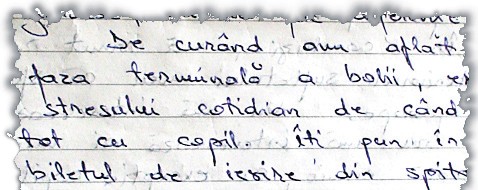 De curând am aflat
faza terminală a bolii,
stresului cotidian de când
tot cu copil. Îti pun în
biletul de iesire din